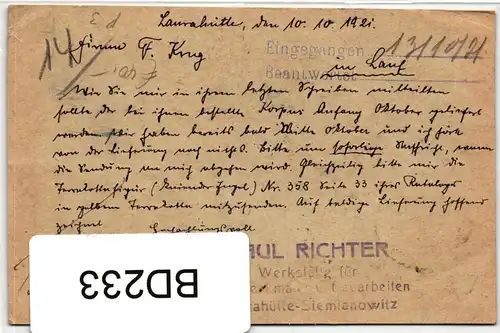 Laurahütte, den 10. 10. 1921.
14/
Firma F. Krug
Eingegangen 13/10/21
Beantwortet
in Lauf
Wie Sie mir in ihrem letzten Schreiben mitteilten
sollte der bei ihnen bestellte Korpus Anfang Oktober geliefert
werden. Wir haben bereits bald Mitte Oktober und ich höre
von der Lieferung noch nichts. Bitte um sofortige Nachricht, wann
die Sendung an mich abgehen wird. Gleichzeitig bitte mir die
Terrakottafigur (knieender Engel) Nr. 358 Seite 33 ihres Katalogs
in gelbem Terrakotta mitzusenden. Auf baldige Lieferung hoffend
zeichnet
Hochachtungsvoll
AUL RICHTER
Werkstätte für
arbeiten
ahütte-Siemianowitz
BD233